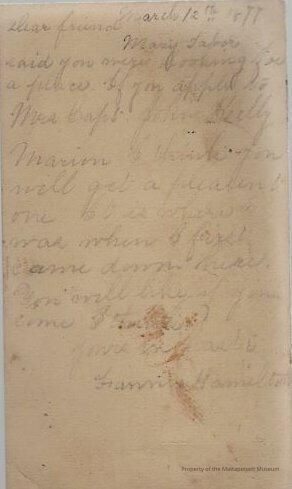 March 12th 1877
Dear friend
Mary Tabor
said you were looking for
a place. If you apply to
Mrs Capt. John Kelly
Marion I think you
will get a pleasent
one it is where I
was when I first
came down here.
You will like if you
come I think
Yours in haste
Fannie Hamilton
Property of the Mattapoisett Museum